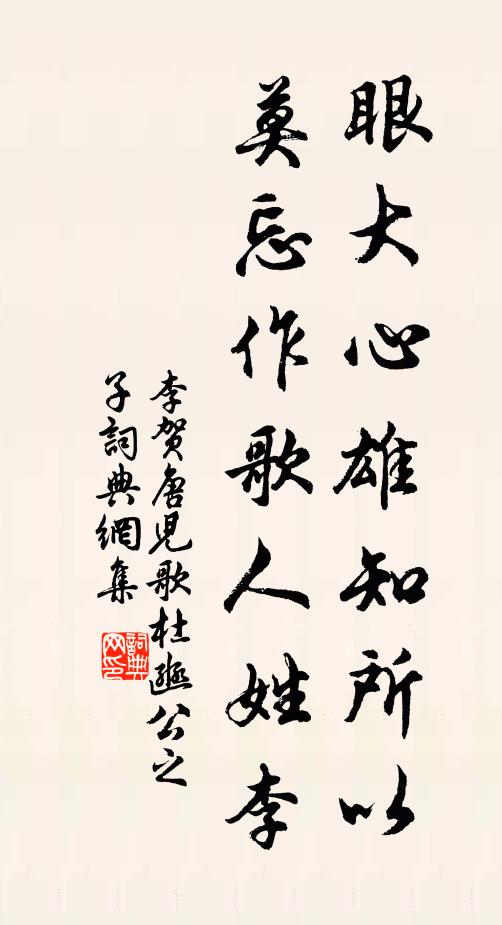 眼大心雄知所以
莫忘作歌人姓李
李賀唐兒歌杜豳公之
子詞典網集
詞典
网印